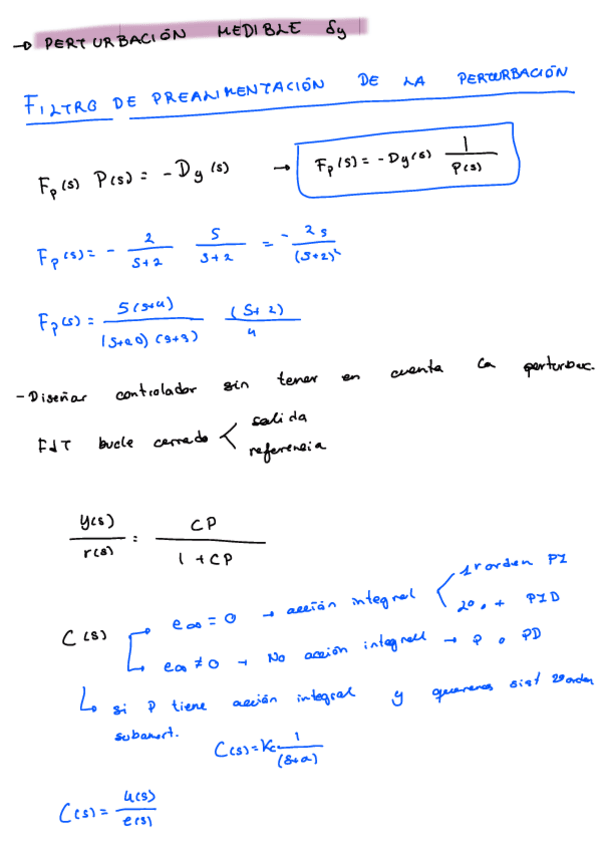 → PERTURBACIÓN MEDIBLE δy
FILTRO DE PREALIMENTACIÓN DE LA PERTURBACIÓN
Fp(s) P(s) = - Dy(s) → Fp(s) = - Dy(s) 1/P(s)
Fp(s) = - 2/(s+2) s/(s+2) = - 2s/(s+2)²
Fp(s) = 5(s+4)/((s+20)(s+3)) (s+2)/4
- Diseñar controlador sin tener en cuenta la perturbac.
FdT bucle cerrado < salida
referencia
y(s)/r(s) = CP/(1 + CP)
C(s) → e∞ = 0 → acción integral < 1r orden PI
2o o + PID
↳ e∞ ≠ 0 → No acción integrall → P o PD
↳ si P tiene acción integral y queremos sist 2o orden
subamort.
C(s) = Kc 1/(s+a)
C(s) = u(s)/e(s)